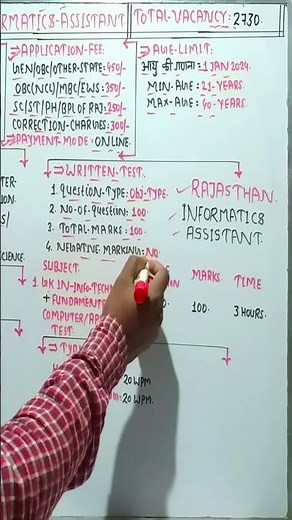 RMATIC8-ASSISTANT
TOTAL-VACANCY: 2730.
⇒APPLICATION-FEE:
GEN/OBC/OTHER-STATE: 450/-
OBC(NCL)/MBC/EWS: 350/-
SC/ST/PH/BPL OF RAJ: 250/-
CORRECTION-CHARGES: 300/-
⇒PAYMENT MODE: ONLINE.
⇒AGE-LIMIT:
आयु की गणना: 1 JAN 2024.
MIN-AGE: 21-YEARS.
MAX-AGE: 40-YEARS.
⇒WRITTEN-TEST:
1. QUESTION-TYPE: OBJ-TYPE.
2. NO-OF-QUESTION: 100.
3. TOTAL-MARKS: 100.
4. NEGATIVE MARKING: NO
✓RAJASTHAN.
✓INFORMATIC8
✓ASSISTANT.
TER-
ION.
S/
SCIENCE.
SUBJECT. MARKS. TIME
1. GK IN-INFO-TECH
+ FUNDAMENT 100. 3 HOURS.
COMPUTER/AP
TEST.
⇒TYP
20 WPM
= 20 WPM.